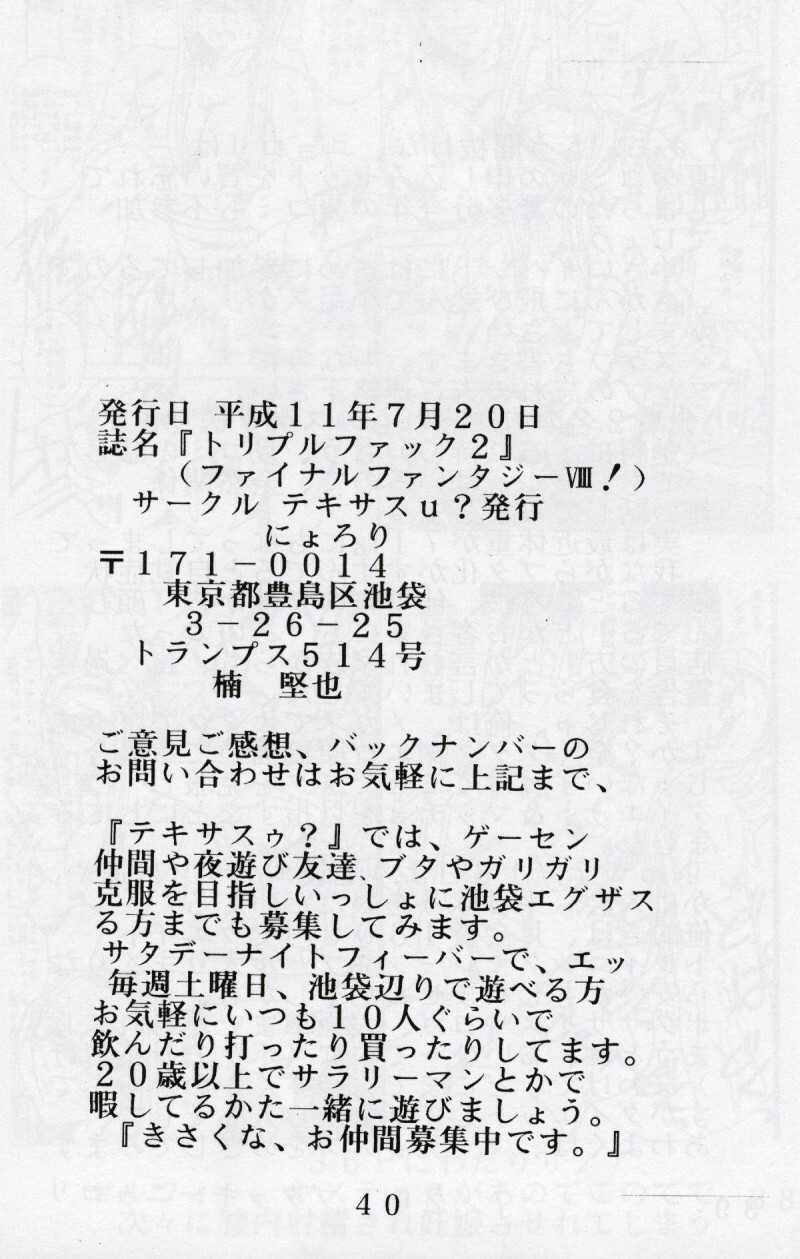 発行日 平成11年7月20日
誌名『トリプルファック2』
(ファイナルファンタジーⅧ!)
サークル テキサスu?発行
にょろり
〒171-0014
東京都豊島区池袋
3-26-25
トランプス514号
楠 堅也
ご意見ご感想、バックナンバーの
お問い合わせはお気軽に上記まで、
『テキサスゥ?』では、ゲーセン
仲間や夜遊び友達、ブタやガリガリ
克服を目指しいっしょに池袋エグザス
る方までも募集してみます。
サタデーナイトフィーバーで、エッ
毎週土曜日、池袋辺りで遊べる方
お気軽にいつも10人ぐらいで
飲んだり打ったり買ったりしてます。
20歳以上でサラリーマンとかで
暇してるかた一緒に遊びましょう。
『きさくな、お仲間募集中です。』
40